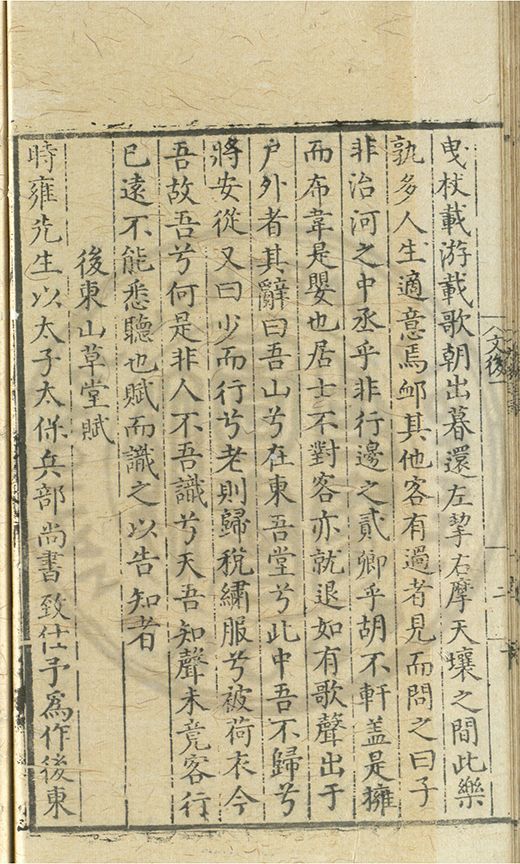 曳杖載游載歌朝出暮還左挈右摩天壤之間此樂
孰多人生適意焉卹其他客有過者見而問之曰子
非治河之中丞乎非行邊之貳卿乎胡不軒盖是擁
而布韋是嬰也居士不對客亦就退如有歌聲出于
户外者其辭曰吾山兮在東吾堂兮此中吾不歸兮
將安從又曰少而行兮老則歸稅繡服兮被荷衣今
吾故吾兮何是非人不吾識兮天吾知聲未竟客行
已遠不能悉聽也賦而識之以告知者
後東山草堂賦
時雍先生以太子太保兵部尚書致仕予爲作後東
文後
二